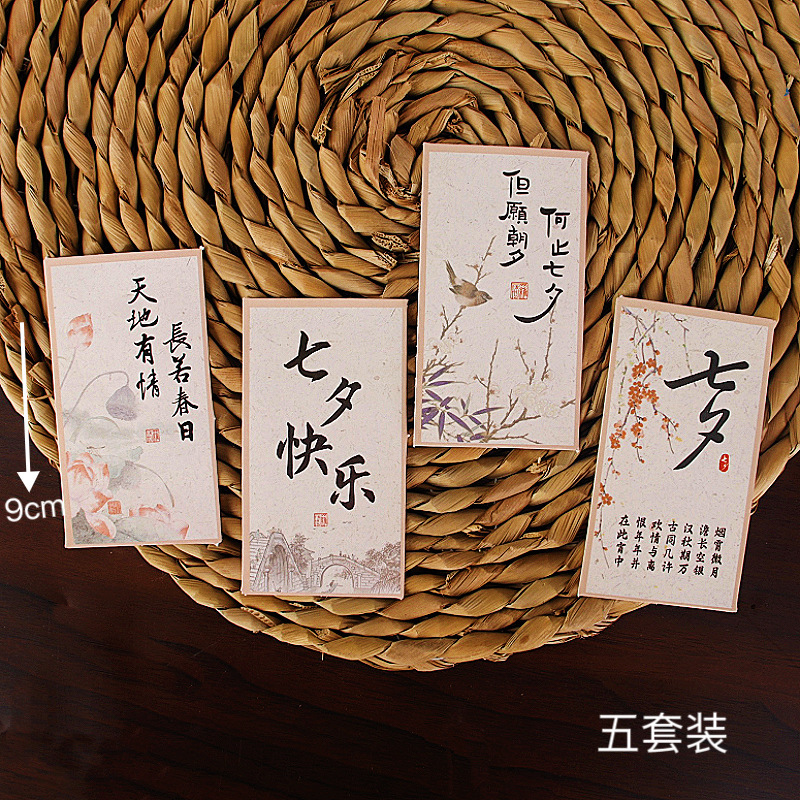 天地有情
長若春日
七夕
快乐
但願朝夕
何止七夕
七夕
七夕
烟霄微月
澹长空银
汉秋期万
古同几许
欢情与离
恨年年并
在此宵中
9cm
五套装